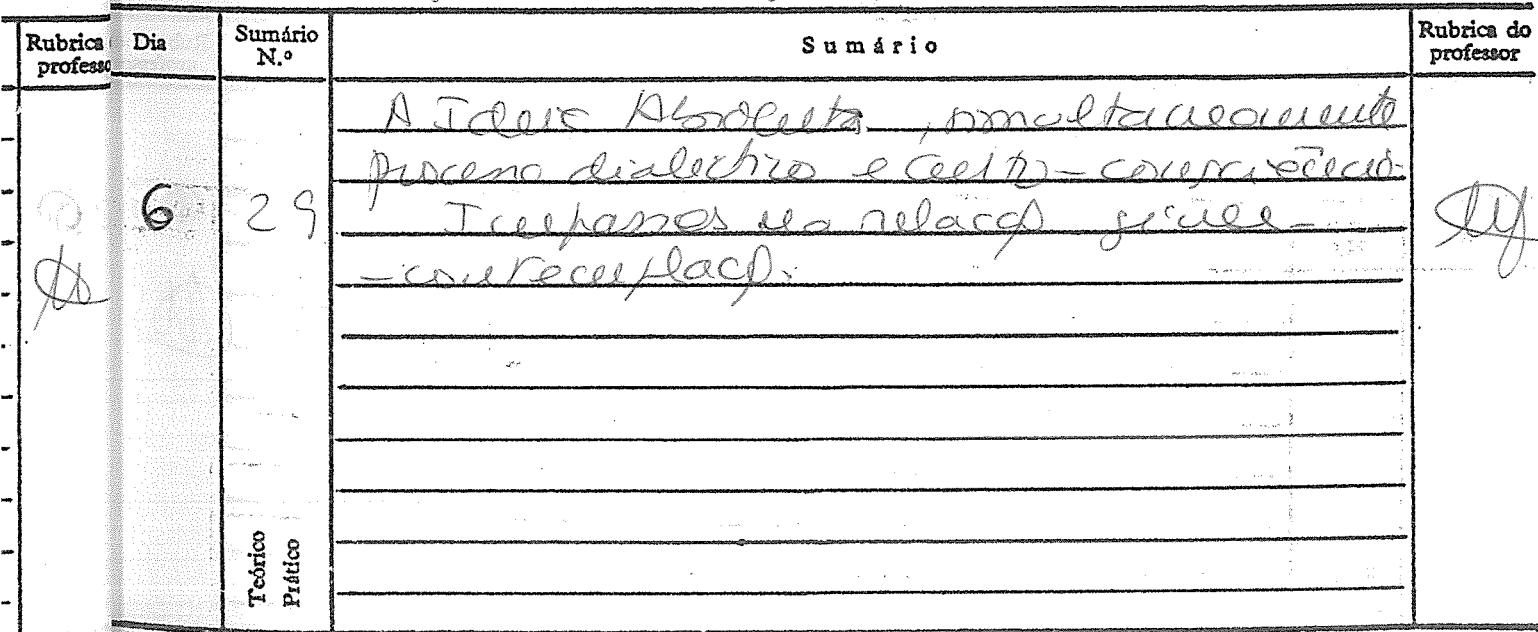 Rubrica
professo
Dia
Sumário
N.º
Sumário
Rubrica do
professor
6
29
A Ideia Absoluta, simultaneamente
processo dialectico e auto-consciência.
Impasses na relação
-contemplação.
Teórico
Prático